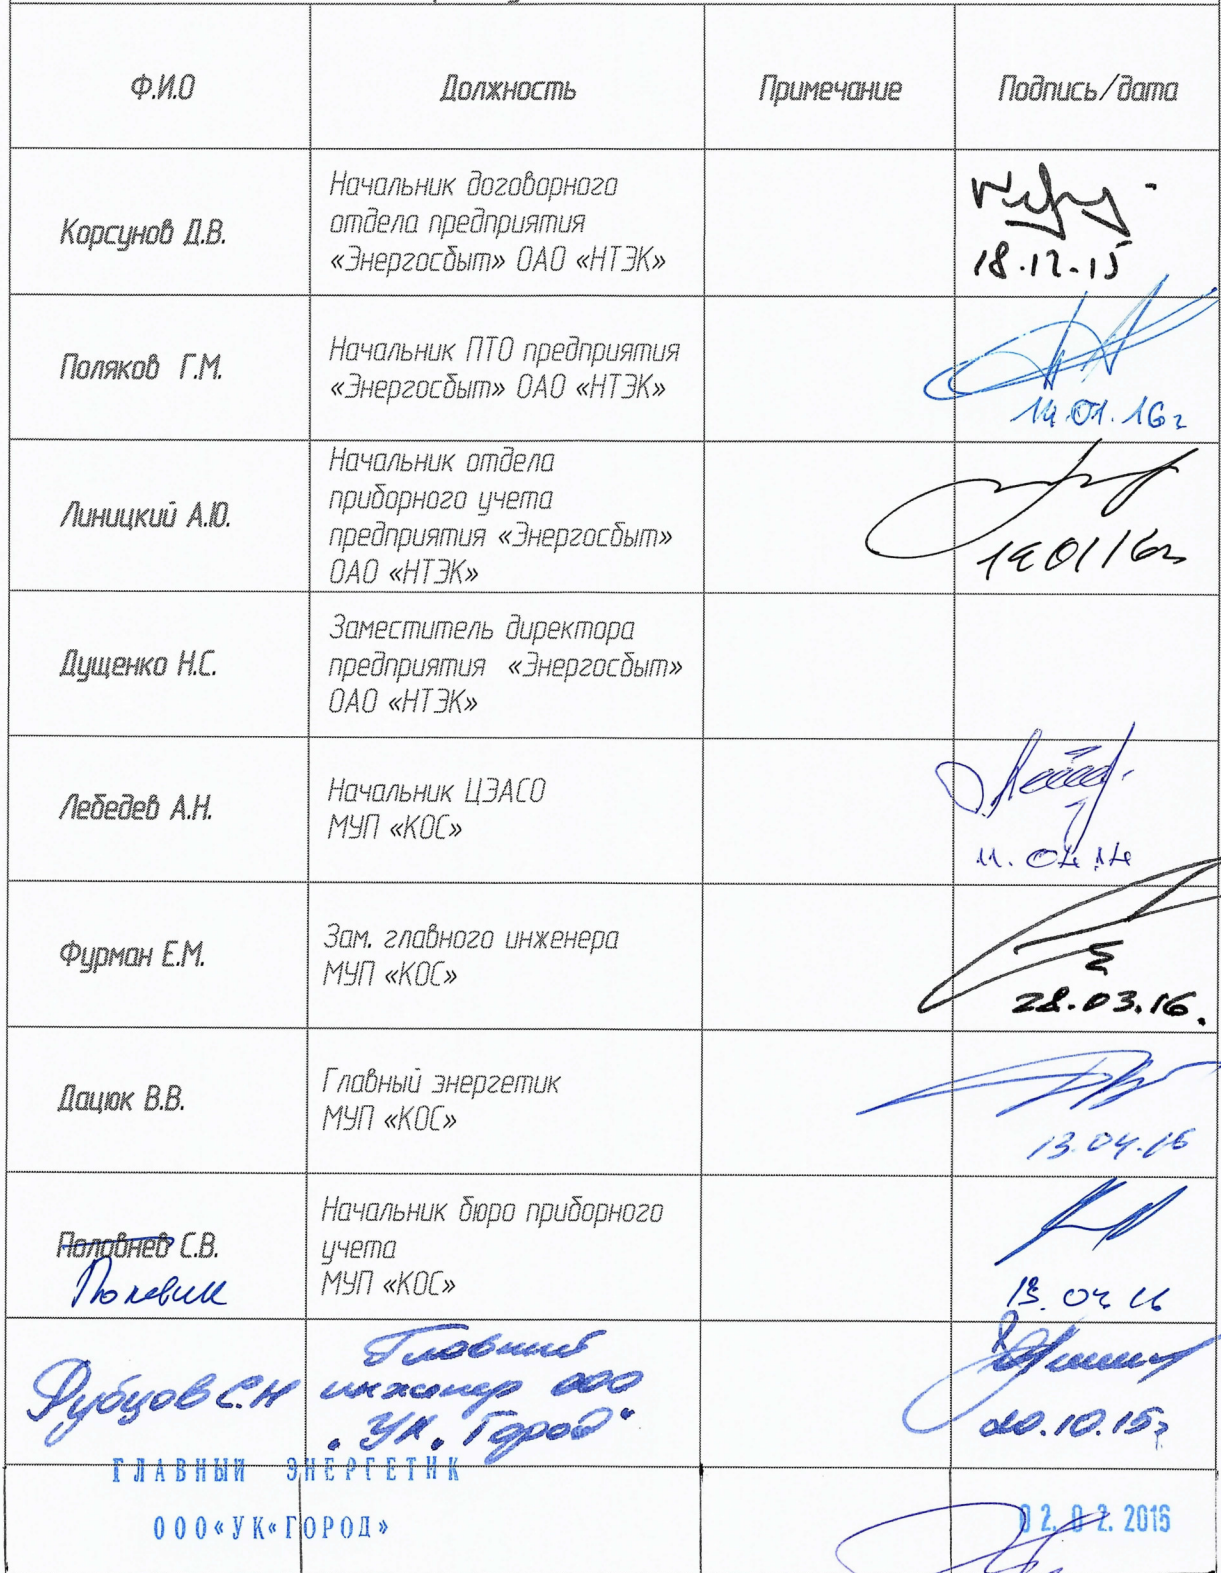 Ф.И.О
Должность
Примечание
Подпись/дата
Корсунов Д.В.
Начальник договорного
отдела предприятия
«Энергосбыт» ОАО «НТЭК»
18.12.15
Поляков Г.М.
Начальник ПТО предприятия
«Энергосбыт» ОАО «НТЭК»
14.01.16г
Линицкий А.Ю.
Начальник отдела
приборного учета
предприятия «Энергосбыт»
ОАО «НТЭК»
Дущенко Н.С.
Заместитель директора
предприятия «Энергосбыт»
ОАО «НТЭК»
Лебедев А.Н.
Начальник ЦЭАСО
МУП «КОС»
Фурман Е.М.
Зам. главного инженера
МУП «КОС»
28.03.16.
Дацюк В.В.
Главный энергетик
МУП «КОС»
13.04.16
Половнев С.В.
Начальник бюро приборного
учета
МУП «КОС»
13.04.16
Рубцов С.Н
Главный
инженер ООО
"УК "Город"
20.10.15г
ГЛАВНЫЙ ЭНЕРГЕТИК
ООО«УК«ГОРОД»
02.02.2016